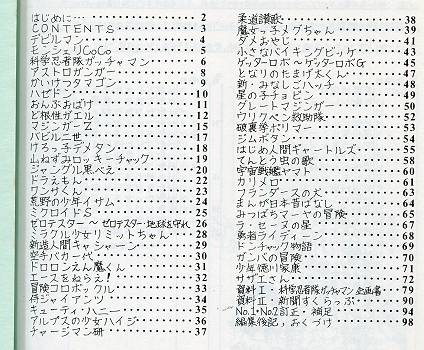 はじめに… 2
CONTENTS 3
デビルマン 4
モンシェリCoCo 5
科学忍者隊ガッチャマン 6
アストロガンガー 8
かいけつタマゴン 9
ハゼドン 10
おんぶおばけ 11
ど根性ガエル 12
マジンガーZ 15
バビル二世 17
けろっ子デメタン 18
山ねずみロッキーチャック 19
ジャングル黒べえ 20
ドラえもん 22
ワンサくん 23
荒野の少年イサム 24
ミクロイドS 25
ゼロテスター〜ゼロテスター・地球を守れ 26
ミラクル少女リミットちゃん 28
新造人間キャシャーン 29
空手バカ一代 30
ドロロンえん魔くん 31
エースをねらえ! 32
冒険コロボックル 33
侍ジャイアンツ 34
キューティ・ハニー 35
アルプスの少女ハイジ 36
チャージマン研 37
柔道讃歌 38
魔女っ子メグちゃん 39
ダメおやじ 41
小さなバイキングビッケ 43
ゲッターロボ〜ゲッターロボG 45
となりのたまげ太くん 47
新・みなしごハッチ 48
星の子チョビン 49
グレートマジンガー 50
ウリクペン救助隊 52
破裏拳ポリマー 53
ジムボタン 54
はじめ人間ギャートルズ 55
てんとう虫の歌 58
宇宙戦艦ヤマト 60
カリメロ 61
フランダースの犬 63
まんが日本昔ばなし 64
みつばちマーヤの冒険 65
ラ・セーヌの星 67
勇者ライディーン 68
ドンチャック物語 69
ガンバの冒険 70
少年徳川家康 71
サザエさん 72
資料I・科学忍者隊ガッチャマン企画書 79
資料II・新聞すくらっぷ 90
No.1・No.2訂正・補足 94
編集後記,おくづけ 98